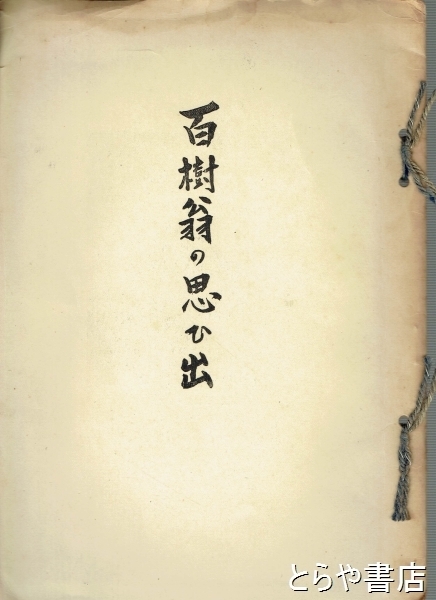 百樹翁の思ひ出
とらや書店